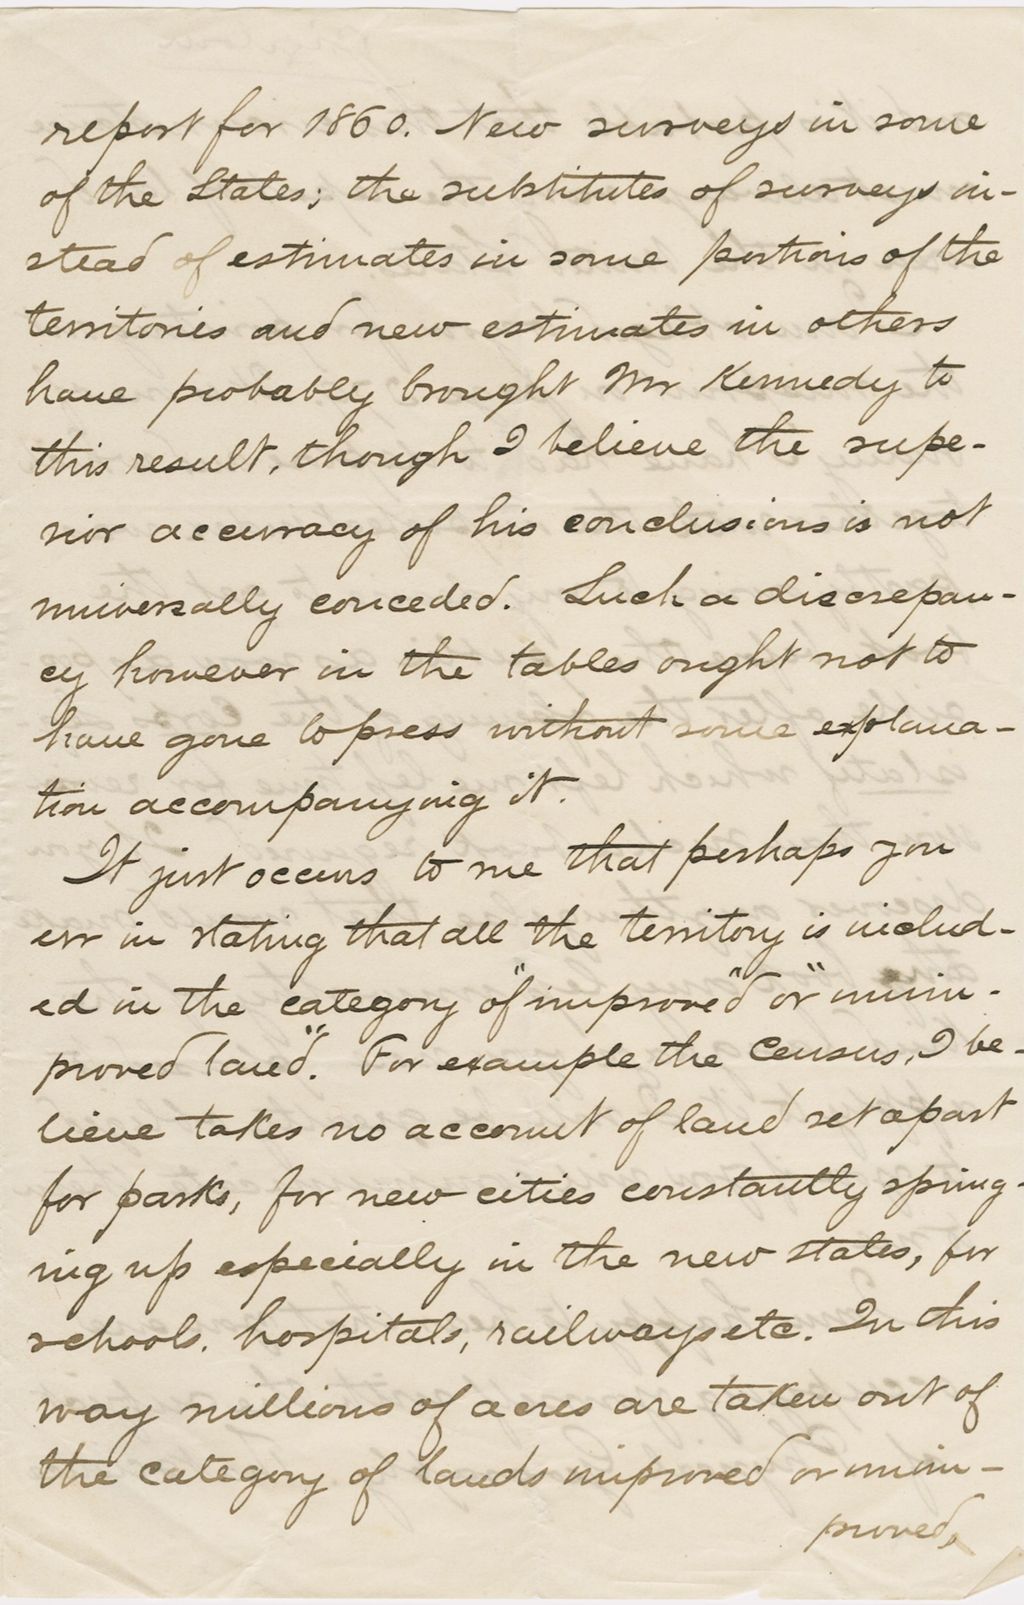 report for 1860. New surveys in some
of the States; the substitutes of surveys in-
stead of estimates in some portions of the
territories and new estimates in others
have probably brought Mr Kennedy to
this result, though I believe the supe-
rior accuracy of his conclusions is not
universally conceded. Such a discrepan-
cy however in the tables ought not to
have gone to press without some explana-
tion accompanying it.
It just occurs to me that perhaps you
err in stating that all the territory is includ-
ed in the category of "improved" or "unim-
proved land". For example the Census, I be-
lieve takes no account of land set apart
for parks, for new cities constantly spring-
ing up especially in the new states, for
schools, hospitals, railways etc. In this
way millions of acres are taken out of
the category of lands improved or unim-
proved,